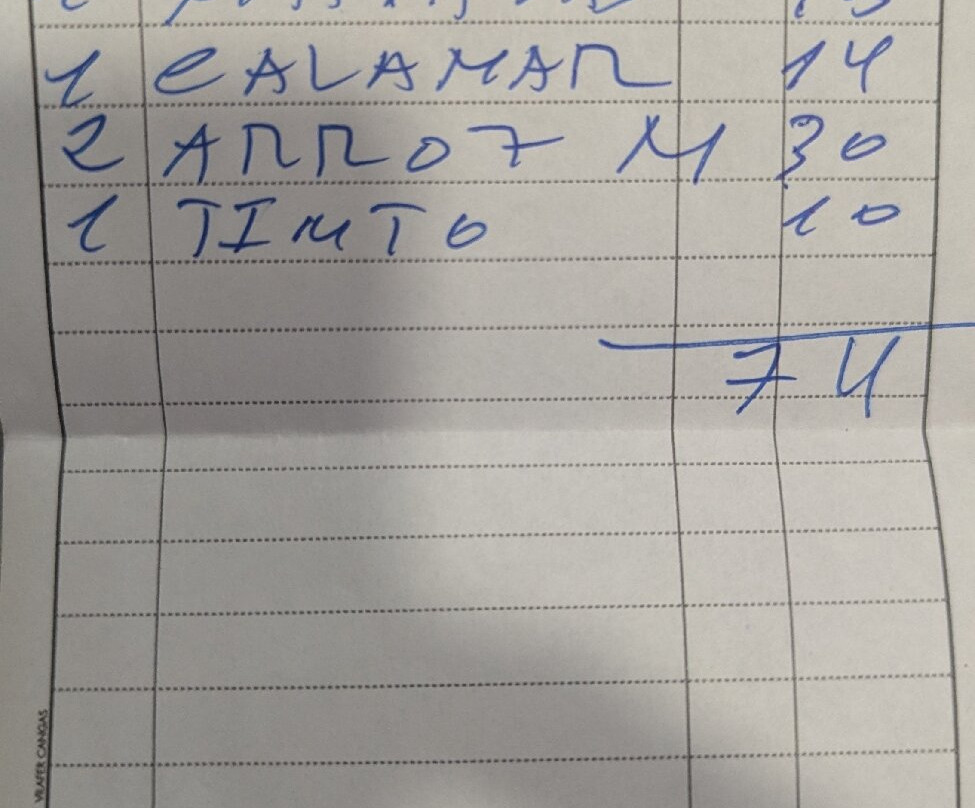 1 CALAMAR 14
2 ARROZ M 30
1 TINTO 10
74
VILAFER CANGAS